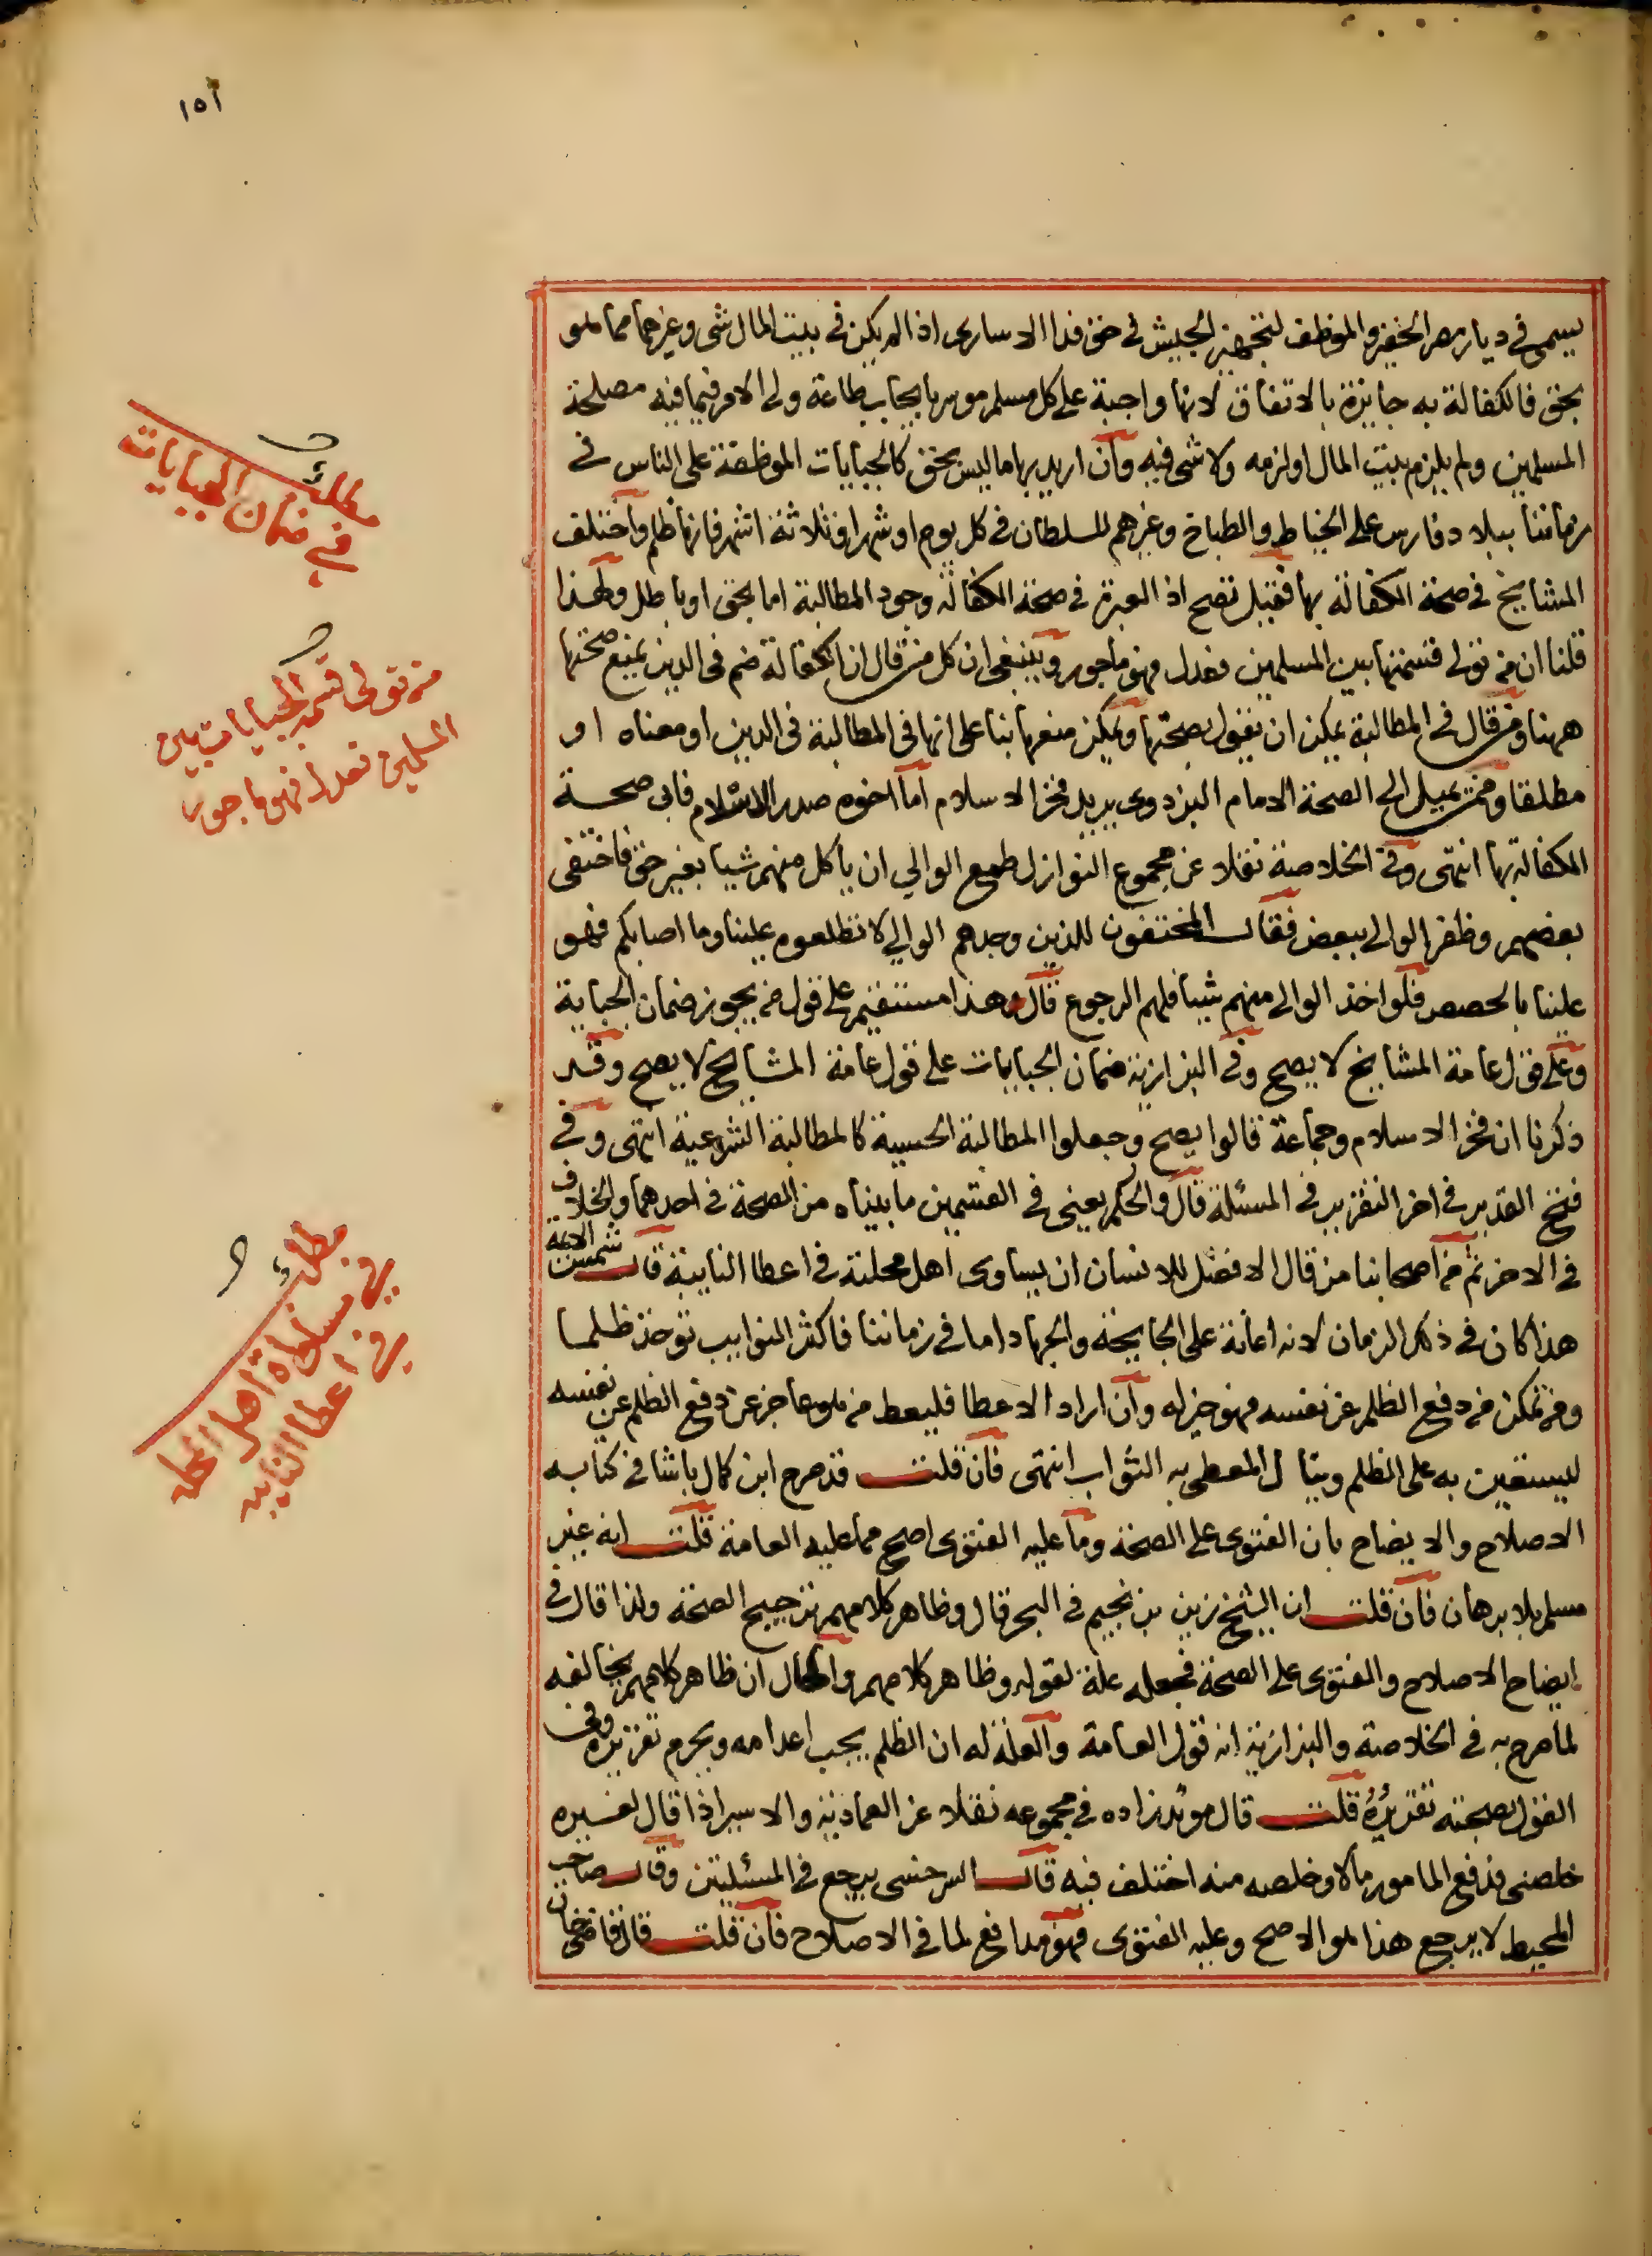 ١٥٢
يسمى في ديار مصر الخفير والموظف لتجهيز الجيش في حق فدا الاسارى اذا لم يكن في بيت المال شي وغيرهما مما هو
بحق فالكفالة به جايزة بالاتفاق لانها واجبة على كل مسلم موسر بايجاب طاعة ولي الامر فيما فيه مصلحة
المسلمين ولم يلزم بيت المال او لزمه ولا شي فيه وان اريد بها ما ليس بحق كالجبايات الموظفة على الناس في
زماننا ببلاد فارس على الخياط والطباخ وغيرهم للسلطان في كل يوم او شهر او ثلاثة اشهر فانها ظلم واختلف
المشايخ في صحة الكفالة بها فقيل تصح اذ العبرة في صحة الكفالة وجود المطالبة اما بحق او باطل ولهذا
قلنا ان من تولى قسمتها بين المسلمين فعدل فهو ماجور وينبغي ان كل من قال ان الكفالة ضم في الدين يمنع صحتها
ههنا ومن قال في المطالبة يمكن ان يقول بصحتها ويمكن منعها بنا على انها في المطالبة في الدين او معناه او
مطلقا وممن يميل الى الصحة الامام البزدوي يريد فخر الاسلام اما اخوه صدر الاسلام فابى صحة
الكفالة بها انتهى وفي الخلاصة نقلا عن مجموع النوازل طمع الوالي ان ياكل منهم شيا بغير حق فاختفى
بعضهم وظفر الوالي ببعض فقال المختفون للذين وجدهم الوالي لا تطلعوه علينا وما اصابكم فهو
علينا بالحصص فلو اخذ الوالي منهم شيا فلهم الرجوع قال هذا مستقيم على قول من يجوز ضمان الجباية
وعلى قول عامة المشايخ لا يصح وفي البزازية ضمان الجبايات على قول عامة المشايخ لا يصح وقد
ذكرنا ان فخر الاسلام وجماعة قالوا يصح وجعلوا المطالبة الحسية كالمطالبة الشرعية انتهى وفي
فتح القدير في اخر التقرير في المسئلة قال والحكم يعني في القسمين ما بيناه من الصحة في احدهما والخلاف
في الاخر ثم من اصحابنا من قال الافضل للانسان ان يساوى اهل محلته في اعطا النايبة قال شمس الايمه
هذا كان في ذلك الزمان لانه اعانة على الجايحة والجهاد اما في زماننا فاكثر النوايب توخذ ظلما
ومن تمكن من دفع الظلم عن نفسه فهو خير له وان اراد الاعطا فليعط من هو عاجز عن دفع الظلم عن نفسه
ليستعين به على الظلم وينال المعطى به الثواب انتهى فان قلت قد صرح ابن كمال باشا في كتابه
الاصلاح والايضاح بان الفتوى على الصحة وما عليه الفتوى اصح مما عليه العامة قلت انه غير
مسلم بلا برهان فان قلت ان الشيخ زين بن نجيم في البحر قال وظاهر كلامهم ترجيح الصحة ولذا قال في
ايضاح الاصلاح والفتوى على الصحة فجعله علة لقوله وظاهر كلامهم والحال ان ظاهر كلامهم يخالفه
لما صرح به في الخلاصة والبزازية انه قول العامة والعلة له ان الظلم يجب اعدامه ويحرم تقريره وفي
القول بصحته تقريره قلت قال مويد زاده في مجموعه نقلا عن العمادية والاسير اذا قال لغيره
خلصني فدفع المامور مالا وخلصه منه اختلف فيه قال السرخسي يرجع في المسئلتين وقال صاحب
المحيط لا يرجع هذا هو الاصح وعليه الفتوى فهو مدافع لما في الاصلاح فان قلت قال قاضي خان
مطلب
في ضمان الجبايات
من تولى قسمة الجبايات بين
المسلمين فعدل فهو ماجور
مطلب
في مساواة اهل المحله
في اعطا النايبه